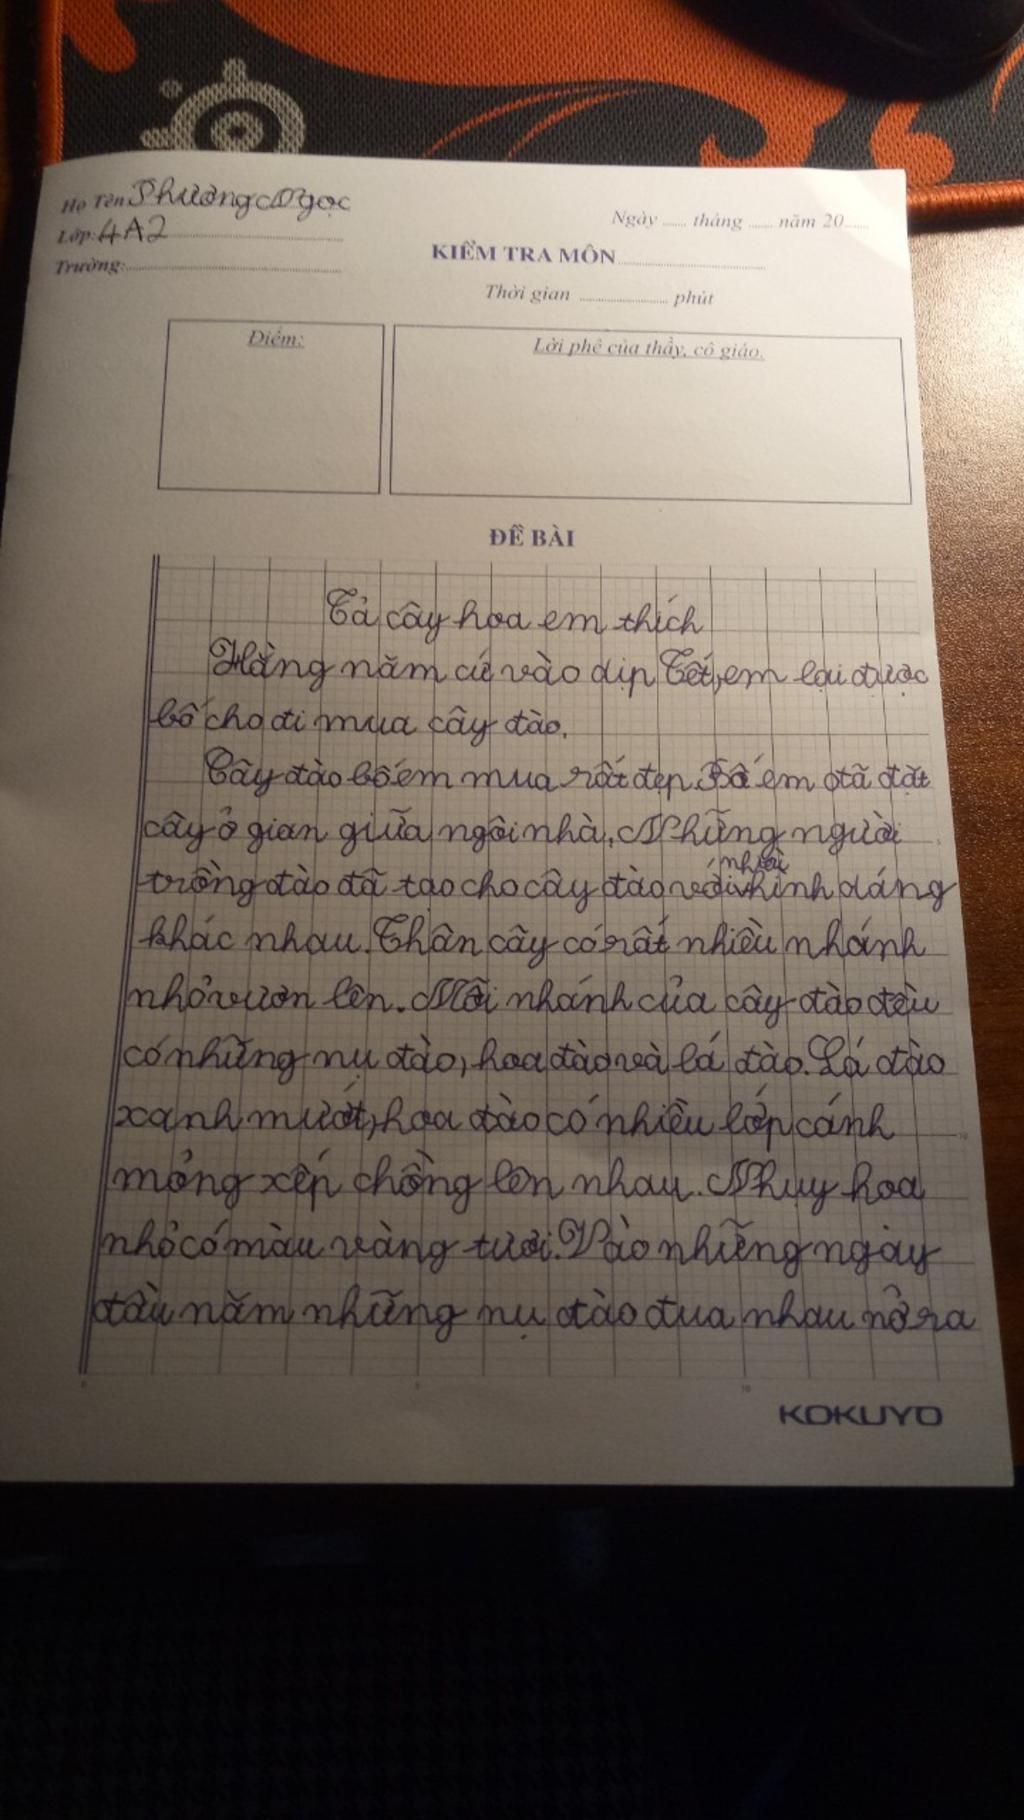 Họ Tên Phương Ngọc
Lớp: 4A2
Trường:
Ngày ...... tháng ...... năm 20......
KIỂM TRA MÔN
Thời gian .................... phút
Điểm:
Lời phê của thầy, cô giáo.
ĐỀ BÀI
Tả cây hoa em thích
Hằng năm cứ vào dịp Tết, em lại được
bố cho đi mua cây đào.
Cây đào bố em mua rất đẹp. Bố em đã đặt
cây ở gian giữa ngôi nhà. Những người
trồng đào đã tạo cho cây đào với nhiều hình dáng
khác nhau. Thân cây có rất nhiều nhánh
nhỏ vươn lên. Mỗi nhánh của cây đào đều
có những nụ đào, hoa đào và lá đào. Lá đào
xanh mướt, hoa đào có nhiều lớp cánh
mỏng xếp chồng lên nhau. Nhụy hoa
nhỏ có màu vàng tươi. Vào những ngày
đầu năm những nụ đào đua nhau nở ra
5
10
0
5
10
KOKUYO